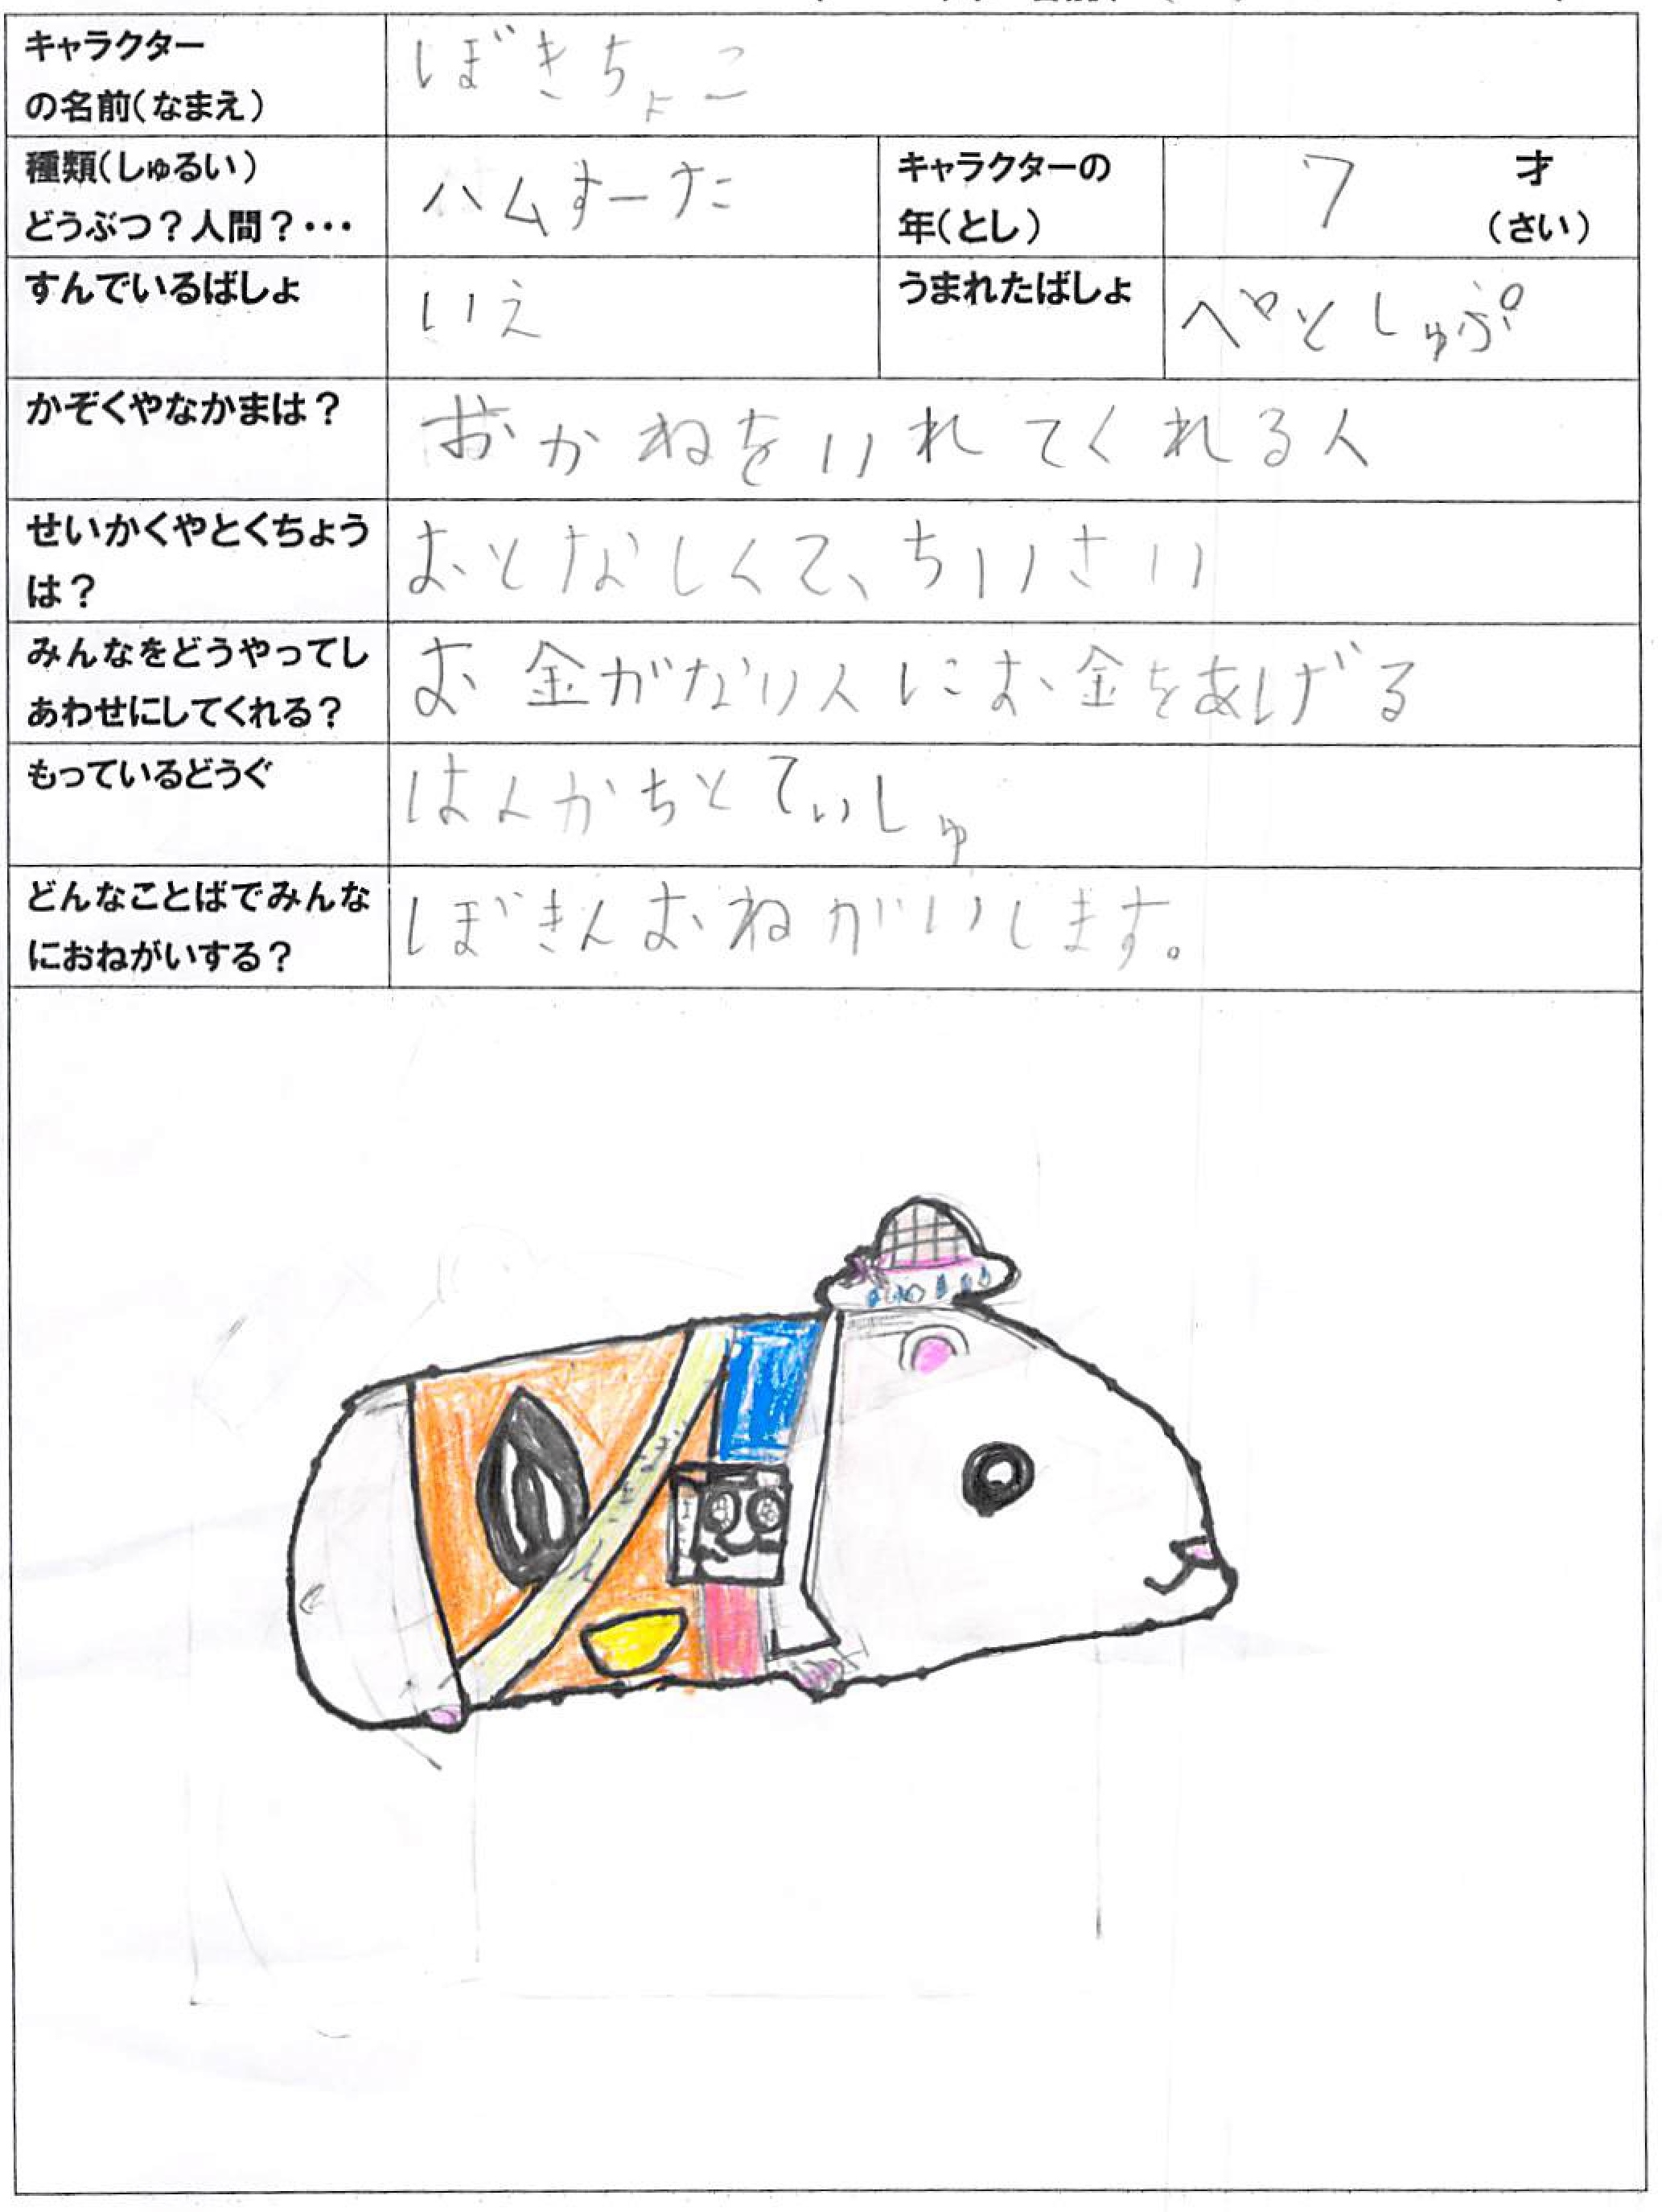 キャラクター
の名前(なまえ)
ぼきちょこ
種類(しゅるい)
どうぶつ？人間？・・・
ハムすーた
キャラクターの
年(とし)
7 才
(さい)
すんでいるばしょ
いえ
うまれたばしょ
ぺとしゅぷ
かぞくやなかまは？
おかねをいれてくれる人
せいかくやとくちょう
は？
おとなしくて、ちいさい
みんなをどうやってし
あわせにしてくれる？
お金がない人にお金をあげる
もっているどうぐ
はんかちとてぃしゅ
どんなことばでみんな
におねがいする？
ぼきんおねがいします。